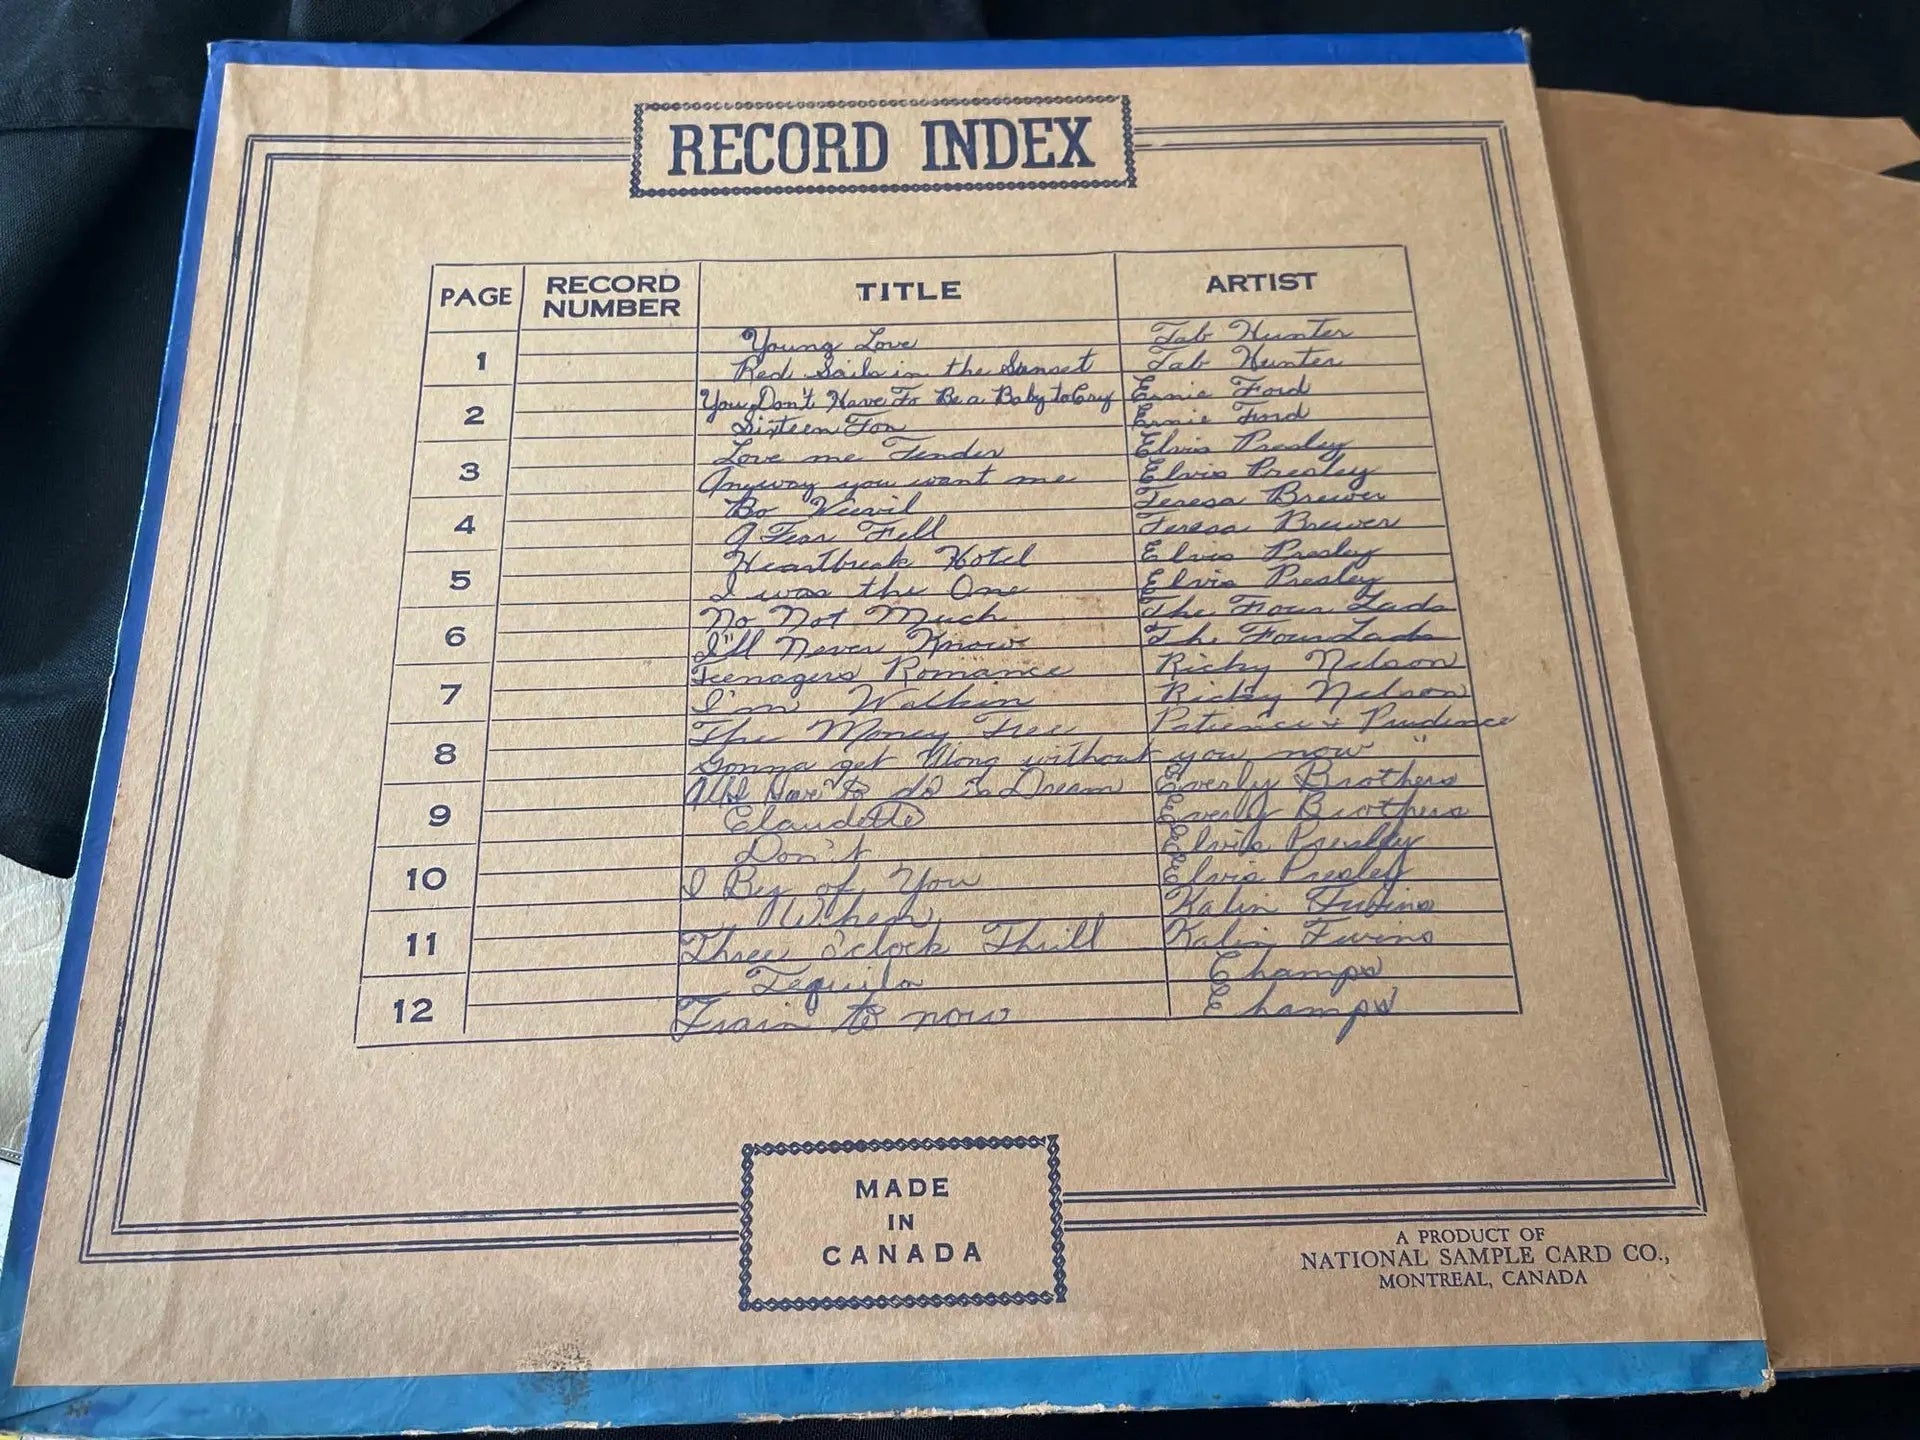 RECORD INDEX
PAGE RECORD NUMBER TITLE ARTIST
Young Love Tab Hunter
1 Red Sails in the Sunset Tab Hunter
You Don't Have To Be a Baby to Cry Ernie Ford
2 Sixteen Ton Ernie Ford
Love me Tender Elvis Presley
3 Anyway you want me Elvis Presley
Bo Weevil Teresa Brewer
4 A Tear Fell Teresa Brewer
Heartbreak Hotel Elvis Presley
5 I was the One Elvis Presley
No Not Much The Four Lads
6 I'll Never Know The Four Lads
Teenagers Romance Ricky Nelson
7 I'm Walkin Ricky Nelson
The Money Tree Patience + Prudence
8 Gonna get Along without you now "
All I Have to do is Dream Everly Brothers
9 Claudette Everly Brothers
Don't Elvis Presley
10 I Beg of You Elvis Presley
When Kalin Twins
11 Three O'clock Thrill Kalin Twins
Tequila Champs
12 Train to now Champs
MADE
IN
CANADA
A PRODUCT OF
NATIONAL SAMPLE CARD CO.,
MONTREAL, CANADA